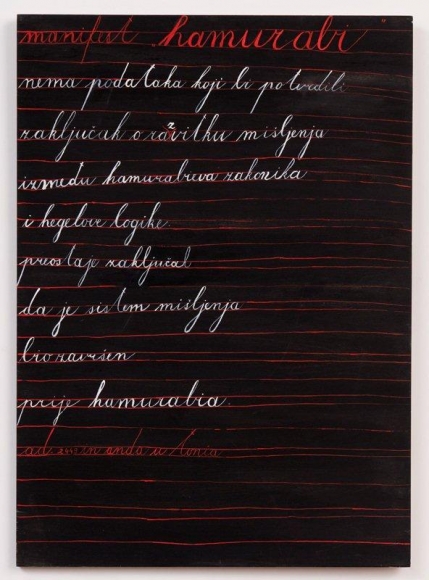 manifest hamurabi"
nema podataka koji bi potvrdili
zaključak o razvitku mišljenja
između hamurabieva zakonika
i hegelove logike.
preostaje zaključak
da je sistem mišljenja
bio završen
prije hamurabia.